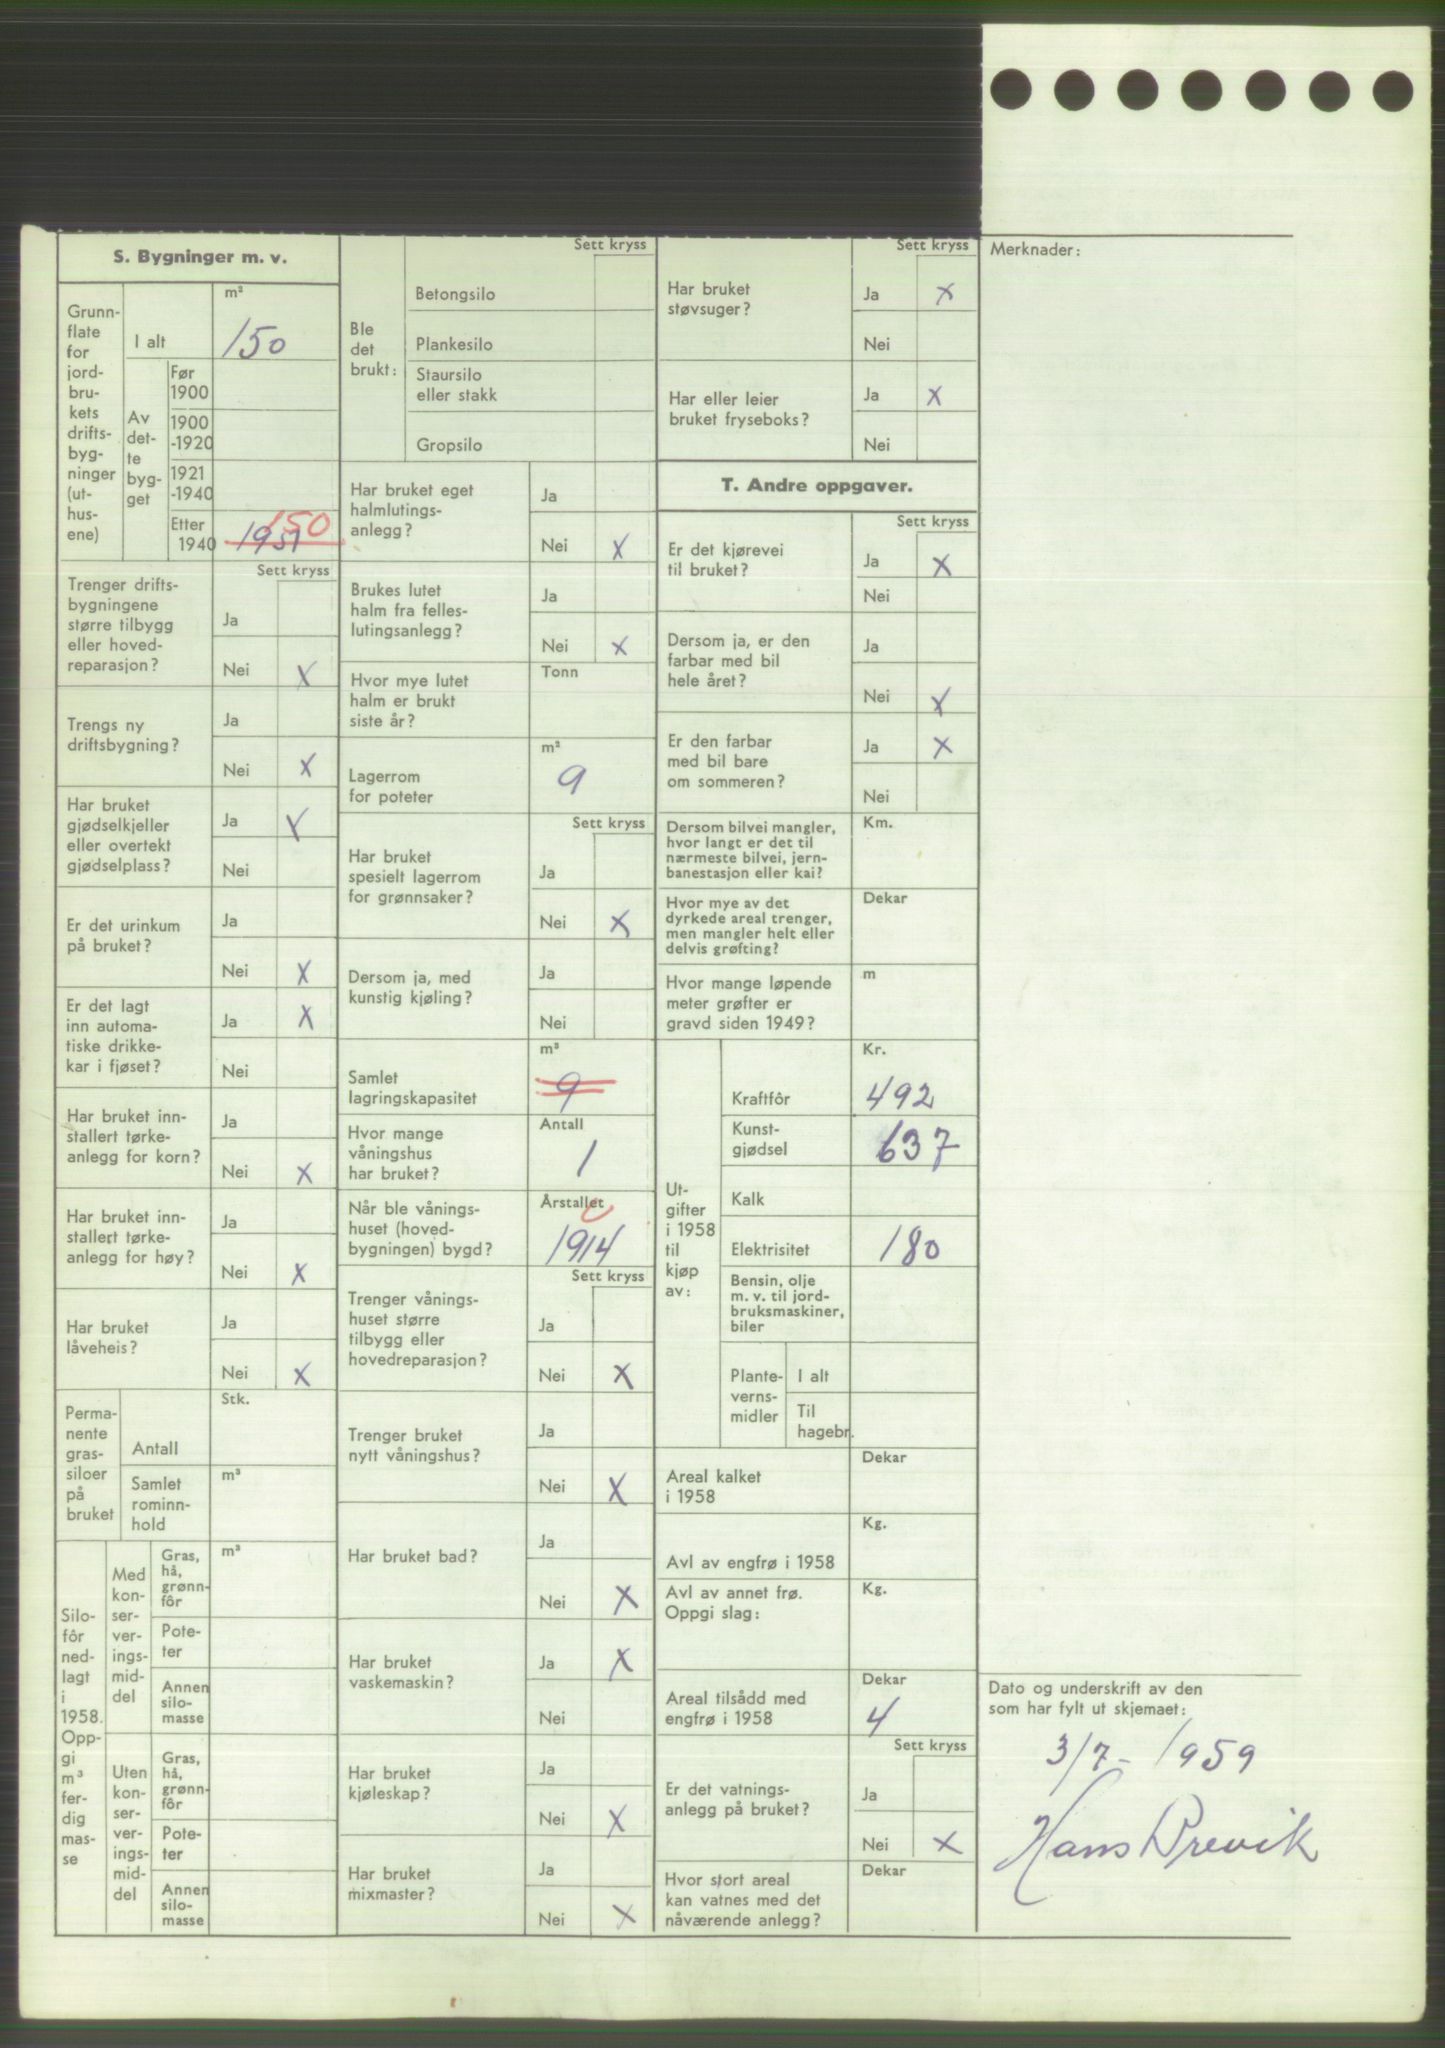 S. Bygninger m. v.
Grunn-
flate
for
jord-
bru-
kets
drifts-
byg-
ninger
(ut-
hus-
ene)
I alt
m²
150
Av
det-
te
byg-
get
Før
1900
1900
-1920
1921
-1940
Etter
1940
1951
150
Sett kryss
Trenger drifts-
bygningene
større tilbygg
eller hoved-
reparasjon?
Ja
Nei X
Trengs ny
driftsbygning?
Ja
Nei X
Har bruket
gjødselkjeller
eller overtekt
gjødselplass?
Ja X
Nei
Er det urinkum
på bruket?
Ja
Nei X
Er det lagt
inn automa-
tiske drikke-
kar i fjøset?
Ja X
Nei
Har bruket inn-
stallert tørke-
anlegg for korn?
Ja
Nei X
Har bruket inn-
stallert tørke-
anlegg for høy?
Ja
Nei X
Har bruket
låveheis?
Ja
Nei X
Perma-
nente
gras-
siloer
på
bruket
Antall
Stk.
Samlet
rominn-
hold
m³
Silo-
fôr
ned-
lagt
i
1958.
Opp-
gi
m³
fer-
dig
mas-
se
Med
kon-
ser-
ver-
ings-
mid-
del
Gras,
hå,
grønn-
fôr
m³
Pote-
ter
Annen
silo-
masse
Uten
kon-
ser-
ver-
ings-
mid-
del
Gras,
hå,
grønn-
fôr
Pote-
ter
Annen
silo-
masse
Sett kryss
Ble
det
brukt:
Betongsilo
Plankesilo
Staursilo
eller stakk
Gropsilo
Har bruket eget
halmlutings-
anlegg?
Ja
Nei X
Brukes lutet
halm fra felles-
lutingsanlegg?
Ja
Nei X
Hvor mye lutet
halm er brukt
siste år?
Tonn
Lagerrom
for poteter
m²
9
Sett kryss
Har bruket
spesielt lagerrom
for grønnsaker?
Ja
Nei X
Dersom ja, med
kunstig kjøling?
Ja
Nei
Samlet
lagringskapasitet
m³
9
Hvor mange
våningshus
har bruket?
Antall
1
Når ble vånings-
huset (hoved-
bygningen) bygd?
Årstallet
1914
Sett kryss
Trenger vånings-
huset større
tilbygg eller
hovedreparasjon?
Ja
Nei X
Trenger bruket
nytt våningshus?
Ja
Nei X
Har bruket bad?
Ja
Nei X
Har bruket
vaskemaskin?
Ja X
Nei
Har bruket
kjøleskap?
Ja
Nei X
Har bruket
mixmaster?
Ja
Nei X
Sett kryss
Har bruket
støvsuger?
Ja X
Nei
Har eller leier
bruket fryseboks?
Ja X
Nei
T. Andre oppgaver.
Sett kryss
Er det kjørevei
til bruket?
Ja X
Nei
Dersom ja, er den
farbar med bil
hele året?
Ja
Nei X
Er den farbar
med bil bare
om sommeren?
Ja X
Nei
Dersom bilvei mangler,
hvor langt er det til
nærmeste bilvei, jern-
banestasjon eller kai?
Km.
Hvor mye av det
dyrkede areal trenger,
men mangler helt eller
delvis grøfting?
Dekar
Hvor mange løpende
meter grøfter er
gravd siden 1949?
m
Ut-
gifter
i 1958
til
kjøp
av:
Kr.
Kraftfôr 492
Kunst-
gjødsel 637
Kalk
Elektrisitet 180
Bensin, olje
m. v. til jord-
bruksmaskiner,
biler
Plante-
verns-
midler
I alt
Til
hagebr.
Areal kalket
i 1958
Dekar
Avl av engfrø i 1958
Kg.
Avl av annet frø.
Oppgi slag:
Kg.
Areal tilsådd med
engfrø i 1958
Dekar
4
Sett kryss
Er det vatnings-
anlegg på bruket?
Ja
Nei X
Hvor stort areal
kan vatnes med det
nåværende anlegg?
Dekar
Merknader:
Dato og underskrift av den
som har fylt ut skjemaet:
3/7 - 1959
Hans Brevik